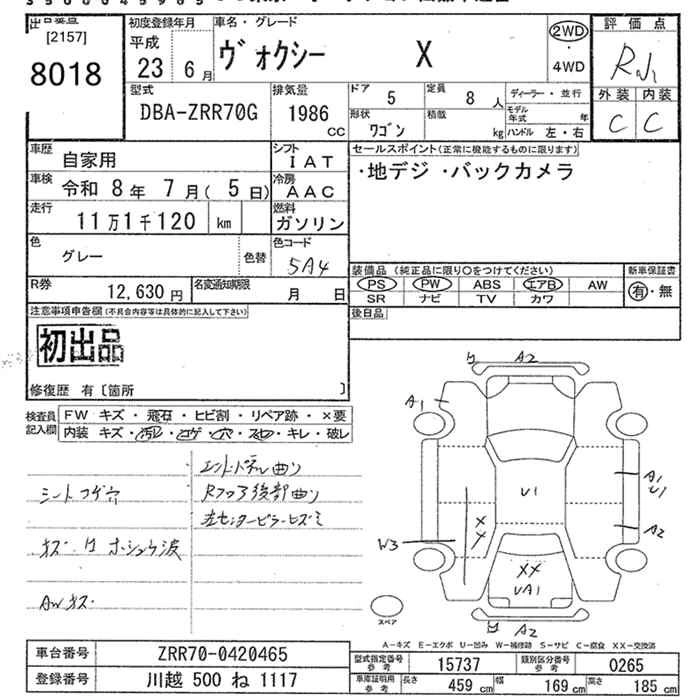 出品番号
[2157]
8018
初度登録年月
平成
23 6月
車名・グレード
ヴォクシー X
2WD
・
4WD
評価点
外装 内装
C C
型式
DBA-ZRR70G
排気量
1986
CC
ドア 5
定員 8人
形状 ワゴン
積載 kg
ディーラー・並行
モデル年式 年
ハンドル 左・右
車歴 自家用
シフト
IAT
車検 令和 8年 7月( 5日)
冷房
AAC
走行 11万1千120 km
燃料
ガソリン
色 グレー
色替
色コード
5A4
R券 12,630円
名変通知期限 月 日
セールスポイント(正常に機能するものに限ります)
・地デジ ・バックカメラ
装備品 (純正品に限り○をつけてください)
PS PW ABS エアB AW
SR ナビ TV カワ
新車保証書
有・無
後日品
注意事項申告欄(不具合内容等は具体的に記入して下さい)
初出品
修復歴 有〔箇所 〕
検査員
記入欄
FW キズ・飛石・ヒビ割・リペア跡・×要
内装 キズ・汚レ・コゲ・穴・スレ・キレ・破レ
エンドパネル曲り
シートコゲ穴
Rフロア後部曲り
左センターピラーヒズミ
AWキズ
A2
A1
U1
A1
U1
A2
W3
XX
XX
UA1
A2
スペア
A-キズ E-エクボ U-凹み W-補修跡 S-サビ C-腐食 XX-交換済
車台番号 ZRR70-0420465
登録番号 川越 500 ね 1117
型式指定番号
参考
15737
類別区分番号
参考
0265
車庫証明用
参考
長さ 459 cm
幅 169 cm
高さ 185 cm